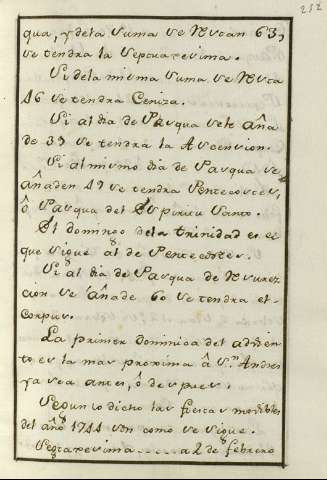 232
qua, y dela suma se Rustan 63,
se tendra la Septuagesima.
Si dela misma suma se Rusta
46 se tendra Ceniza.
Si al dia de Pasqua sele aña
de 39 se tendra la Ascension.
Si al mismo dia de Pasqua se
añaden 49 se tendra Pentecostes,
ô Pasqua del Espiritu Santo.
El domingo dela trinidad es el
que sigue al de Pentecostes.
Si al dia de Pasqua de Rurez
cion se añade 60 se tendra el
Corpus.
La primer dominica del adviento
es la mas proxima â Sn. Andres
ya sea antes, ô despues.
Segun lo dicho las fiestas movibles
del año 1744 son como se sigue.
Septuagesima ..... a 2 de febrero